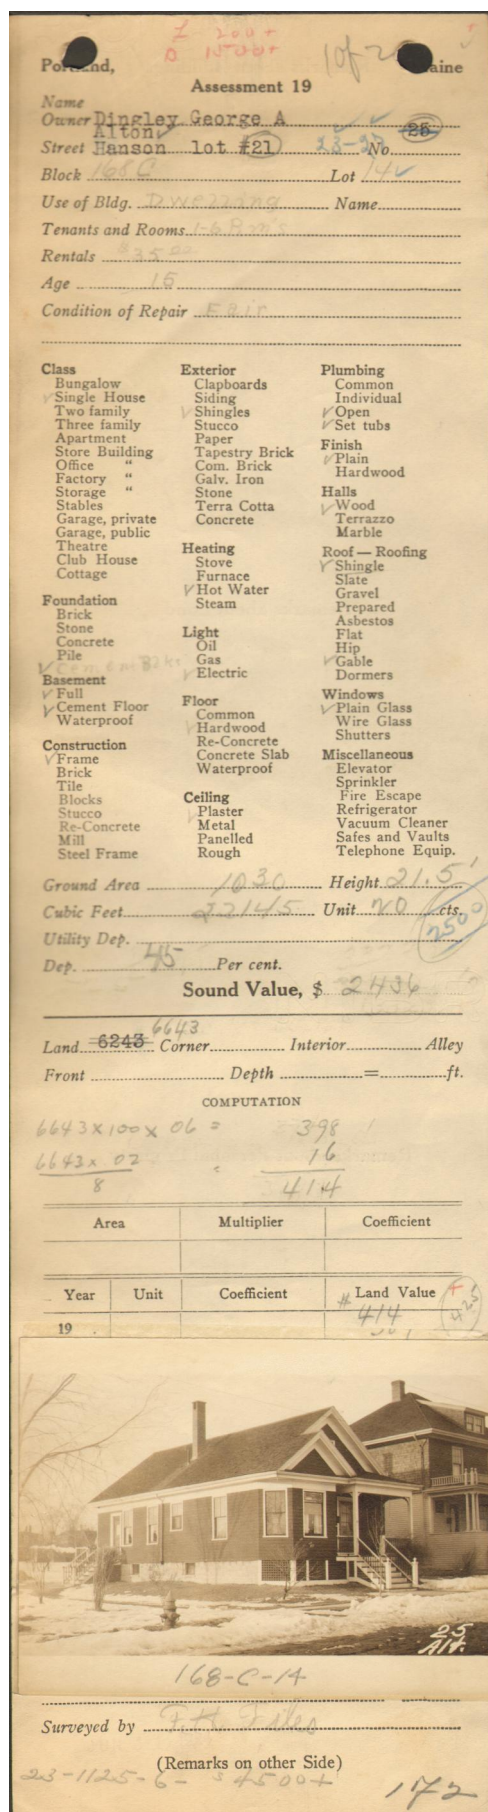 L 200+
B 1500+
1 of 2
Portland, Maine
Assessment 19
Name
Owner Dingley George A
Alton
Street Hanson lot #21 23-27 No. 25
Block 168 C Lot 14
Use of Bldg. Dwelling Name
Tenants and Rooms 1-6 Rms
Rentals $35.00
Age 15
Condition of Repair Fair
Class
Bungalow
✓ Single House
Two family
Three family
Apartment
Store Building
Office "
Factory "
Storage "
Stables
Garage, private
Garage, public
Theatre
Club House
Cottage
Foundation
Brick
Stone
Concrete
Pile
✓ Cement Blks
Basement
✓ Full
✓ Cement Floor
Waterproof
Construction
✓ Frame
Brick
Tile
Blocks
Stucco
Re-Concrete
Mill
Steel Frame
Exterior
Clapboards
Siding
✓ Shingles
Stucco
Paper
Tapestry Brick
Com. Brick
Galv. Iron
Stone
Terra Cotta
Concrete
Heating
Stove
Furnace
✓ Hot Water
Steam
Light
Oil
Gas
✓ Electric
Floor
Common
✓ Hardwood
Re-Concrete
Concrete Slab
Waterproof
Ceiling
✓ Plaster
Metal
Panelled
Rough
Plumbing
Common
Individual
✓ Open
✓ Set tubs
Finish
✓ Plain
Hardwood
Halls
✓ Wood
Terrazzo
Marble
Roof — Roofing
✓ Shingle
Slate
Gravel
Prepared
Asbestos
Flat
Hip
✓ Gable
Dormers
Windows
✓ Plain Glass
Wire Glass
Shutters
Miscellaneous
Elevator
Sprinkler
Fire Escape
Refrigerator
Vacuum Cleaner
Safes and Vaults
Telephone Equip.
Ground Area 1030 Height 21.5'
Cubic Feet 22145 Unit 20 cts.
2500
Utility Dep.
Dep. 45 Per cent.
Sound Value, $ 2436
6643
Land 6243 Corner Interior Alley
Front Depth = ft.
COMPUTATION
6643 x 100 x 06 = 398
6643 x 02 16
8 " 414
Area Multiplier Coefficient
Year Unit Coefficient Land Value
19 # 414 425
25
Alt.
168-C-14
Surveyed by F.H. Files
(Remarks on other Side)
23-1125-6- $4500+
172